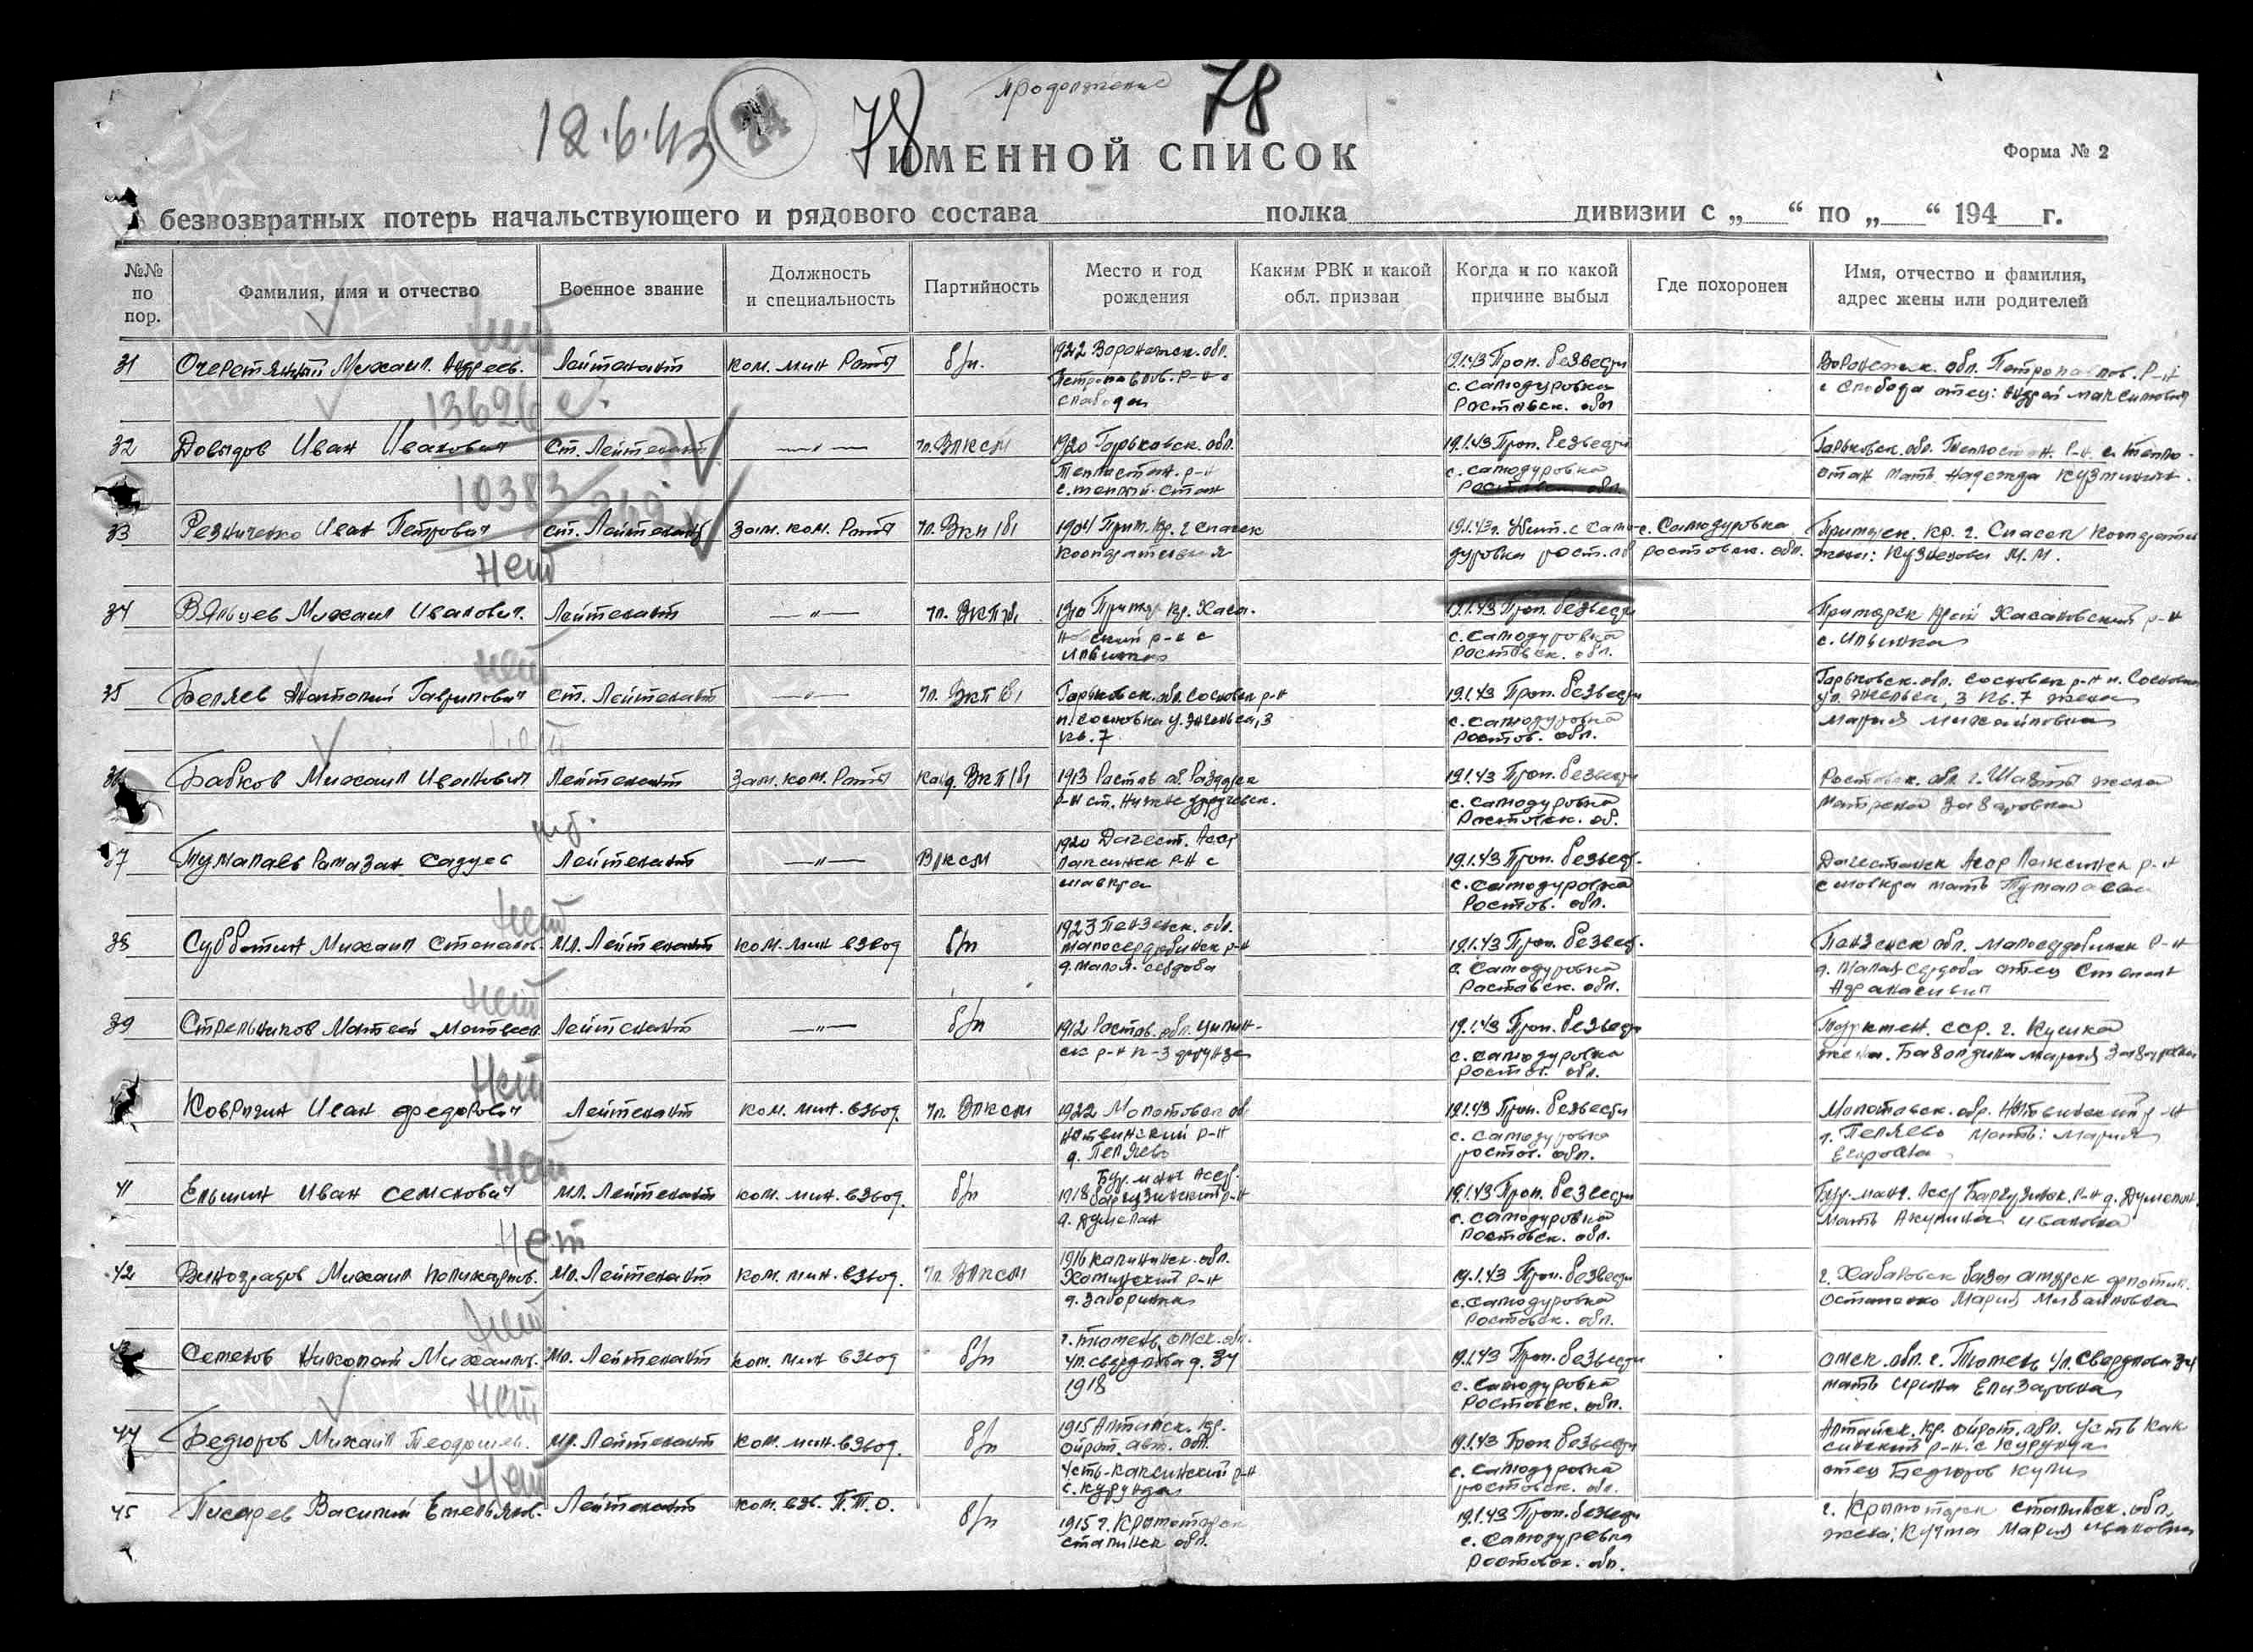 продолжение
12.6.43 24 78 78
ИМЕННОЙ СПИСОК
Форма № 2
безвозвратных потерь начальствующего и рядового состава полка дивизии с „ “ по „ “ 194 г.
№№ по пор. Фамилия, имя и отчество Военное звание Должность и специальность Партийность Место и год рождения Каким РВК и какой обл. призван Когда и по какой причине выбыл Где похоронен Имя, отчество и фамилия, адрес жены или родителей
нет
31 Очеретяный Михаил Андреев. Лейтенант ком. мин Роты б/п. 1922 Воронежск. обл. 19.1.43 Проп. безвести Воронежск. обл. Петропавлов. р-н
Петропавлов. р-н с с. самодуровка с слобода отец: Андрей Максимович
слобода Ростовск. обл
13626 с.
32 Довыдов Иван Иванович Ст. Лейтенант —„— чл. ВЛКСМ 1920 Горьковск. обл. 19.1.43 Проп. безвести Горьковск. обл. Теплостан. р-н. с. Тепло-
Теплостан. р-н с. самодуровка стан мать Надежда Кузминич.
с. теплый-стан Ростовск. обл.
10383
33 Резниченко Иван Петрович ст. Лейтенант Зам. ком. Роты чл. ВКП/б/ 1904 Прим. кр. г. Спасск 19.1.43г. Убит. с само- с. Самодуровка Примрск. кр. г. Спасск
дуровка рост. об ростовск. обл. жена: Кузнецова М.М.
нет
34 Вяльцев Михаил Иванович. Лейтенант —„— чл. ВКП/б/ 1910 Примор кр. Хаса- 19.1.43 Проп. безвести Приморск край Хасановский р-н
нский р-н с с. самодуровка с. Ильинка
Ильинка Ростовск. обл.
нет
35 Беляев Анатолий Гаврилович ст. Лейтенант —„— чл. ВКП/б/ Горьковск. обл. Сосновск р-н 19.1.43 Проп. безвести Горьковск. обл. Сосновск р-н п. Сосновка
п. Сосновка у. Энгельса, 3 с. самодуровка ул. Энгельса, 3 кв. 7 жена
кв. 7 Ростов. обл. Мария Михайловна
нет
36 Бабков Михаил Иванович Лейтенант Зам. ком. Роты канд. ВКП/б/ 1913 Ростов об Раздорск 19.1.43 Проп. безвести Ростовск. обл. г. Шахты жена
р-н ст. Нижне с. самодуровка Матрена Захаровна
Ростовск. об.
37 Тумалаев Рамазан Садуев Лейтенант —„— ВЛКСМ 1920 Дагест. Асср 19.1.43 Проп. безвест. Дагестанск Асср Лакскинск р-н
р-н с с. самодуровка мать
Ростов. обл.
нет
38 Субботин Михаил Степанов. мл. Лейтенант ком. мин взвод б/п 1923 Пензенск. обл. 19.1.43 Проп. безвест. Пензенск обл. Малосердобинск р-н
малосердобинск р-н с. самодуровка д. Малая сердоба отец Степан
д. малая. сердоба Ростовск. обл. Афанасивич
нет
39 Стрельников Матвей Матвеев. Лейтенант —„— б/п 1912 Ростов. обл. Цимлян- 19.1.43 Проп. безвести Туркмен. сср. г. Кушка
ск р-н к-з фрунзе с. самодуровка жена. Мария
Ростов. обл.
нет
Ковригин Иван Федорович Лейтенант ком. мин. взвод. чл. ВЛКСМ 1922 Молотовск об 19.1.43 Проп. безвести Молотовск. обл. Нытвинский р-н
Нытвинский р-н с. самодуровка д. Пеляево мать: Мария
д. Пеляево ростов. обл. Егоровна
нет
41 Ельшин Иван Семенович мл. Лейтенант ком. мин. взвод. б/п Бур. монг Асср. 19.1.43 Проп. безвести Бур. монг. Асср Баргузинск. р-н д. Душелан
1918 баргузинский р-н с. самодуровка мать Акулина Ивановна
д. Душелан Ростовск. обл.
нет
42 Виноградов Михаил Поликарпов. мл. Лейтенант ком. мин. взвод. чл. ВЛКСМ 1916 Калининск. обл. 19.1.43 Проп. безвести г. Хабаровск база амурск флотил.
р-н с. самодуровка Остапенко Мария Михайловна
д. Заборинка Ростовск. обл.
нет
43 Семенов Николай Михайлов. мл. Лейтенант ком. мин взвод б/п г. Тюмень омск. обл. 19.1.43 Проп. безвести омск. обл. г. Тюмень ул. Свердлова 34
ул. свердлова д. 34 с. самодуровка мать Ирина Елизаровна
1918 Ростовск. обл.
нет
44 Бедюров Михаил мл. Лейтенант ком. мин. взвод. б/п 1915 Алтайск. кр. 19.1.43 Проп. безвести Алтайск. кр. ойрот. обл. Усть Кок
ойрот. авт. обл. с. самодуровка синский р-н. с Курунда
Усть-коксинский р-н ростовск. обл. отец Бедюров
с. Курунда
нет
45 Писарев Василий Емельянов. Лейтенант ком. взв. П.Т.О. б/п 1915 г. Краматорск 19.1.43 Проп. безвести г. Краматорск сталинск. обл.
сталинск обл. с. Самодуревка жена: Кучма Мария Ивановна
Ростовск. обл.